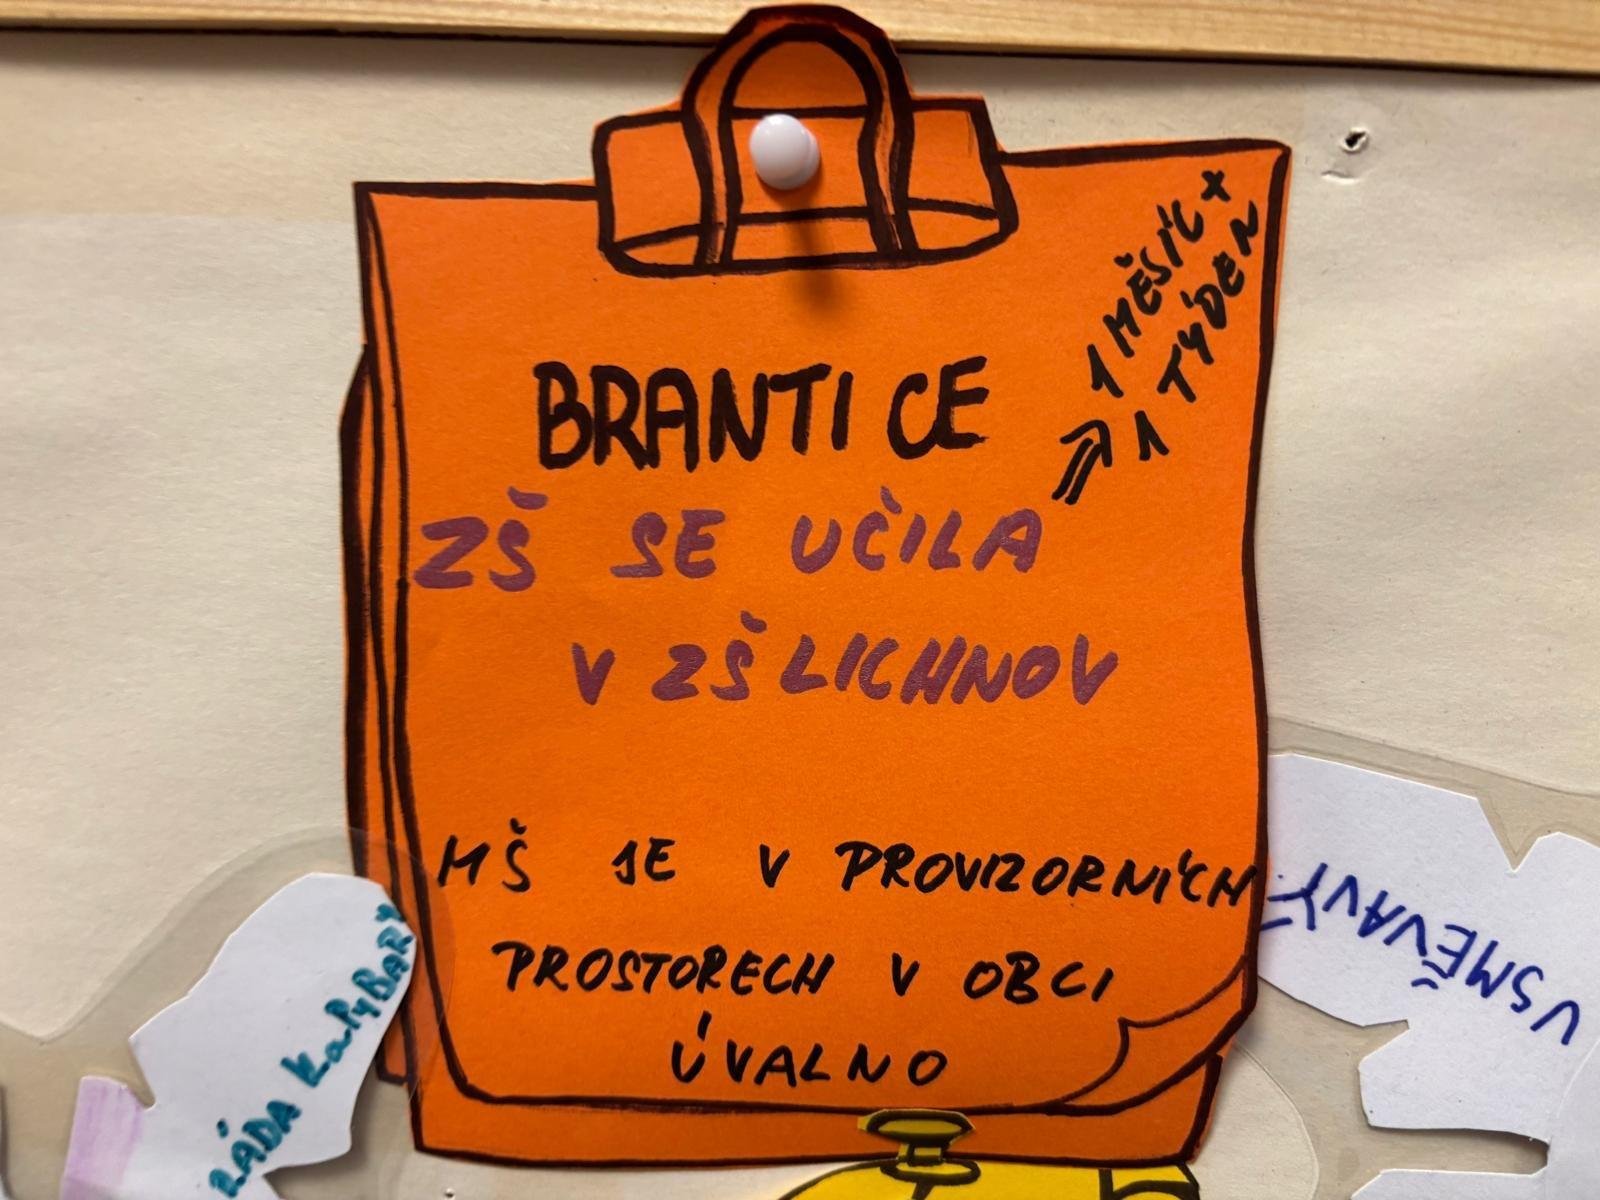 1 MĚSÍC +
1 TÝDEN
BRANTICE
ZŠ SE UČILA
V ZŠ LICHNOV
MŠ JE V PROVIZORNÍCH
PROSTORECH V OBCI
ÚVALNO
RÁDA KaPyBARY
VSMĚVAVÝ